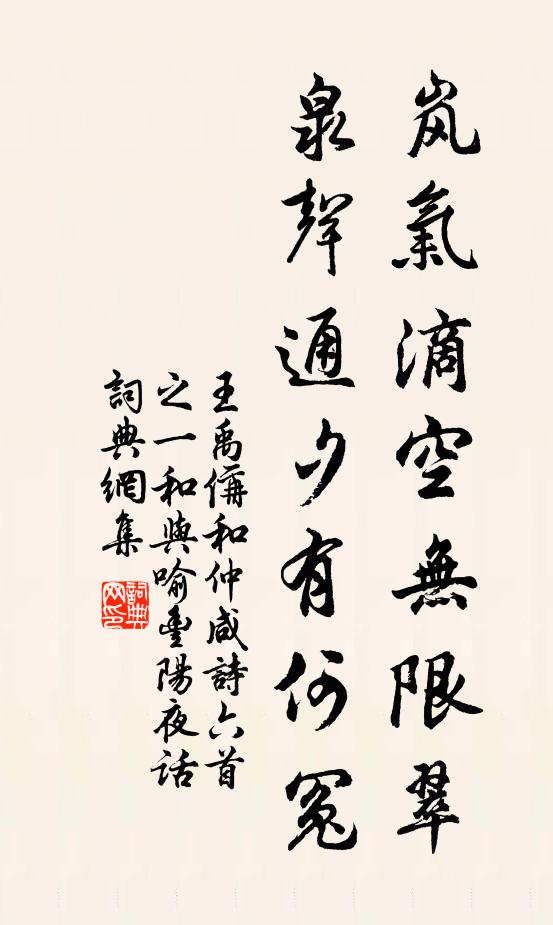 岚氣滴空無限翠
泉聲通夕有何冤
王禹偁和仲咸詩六首
之一和與喻豐陽夜话
詞典網集
詞典
网印